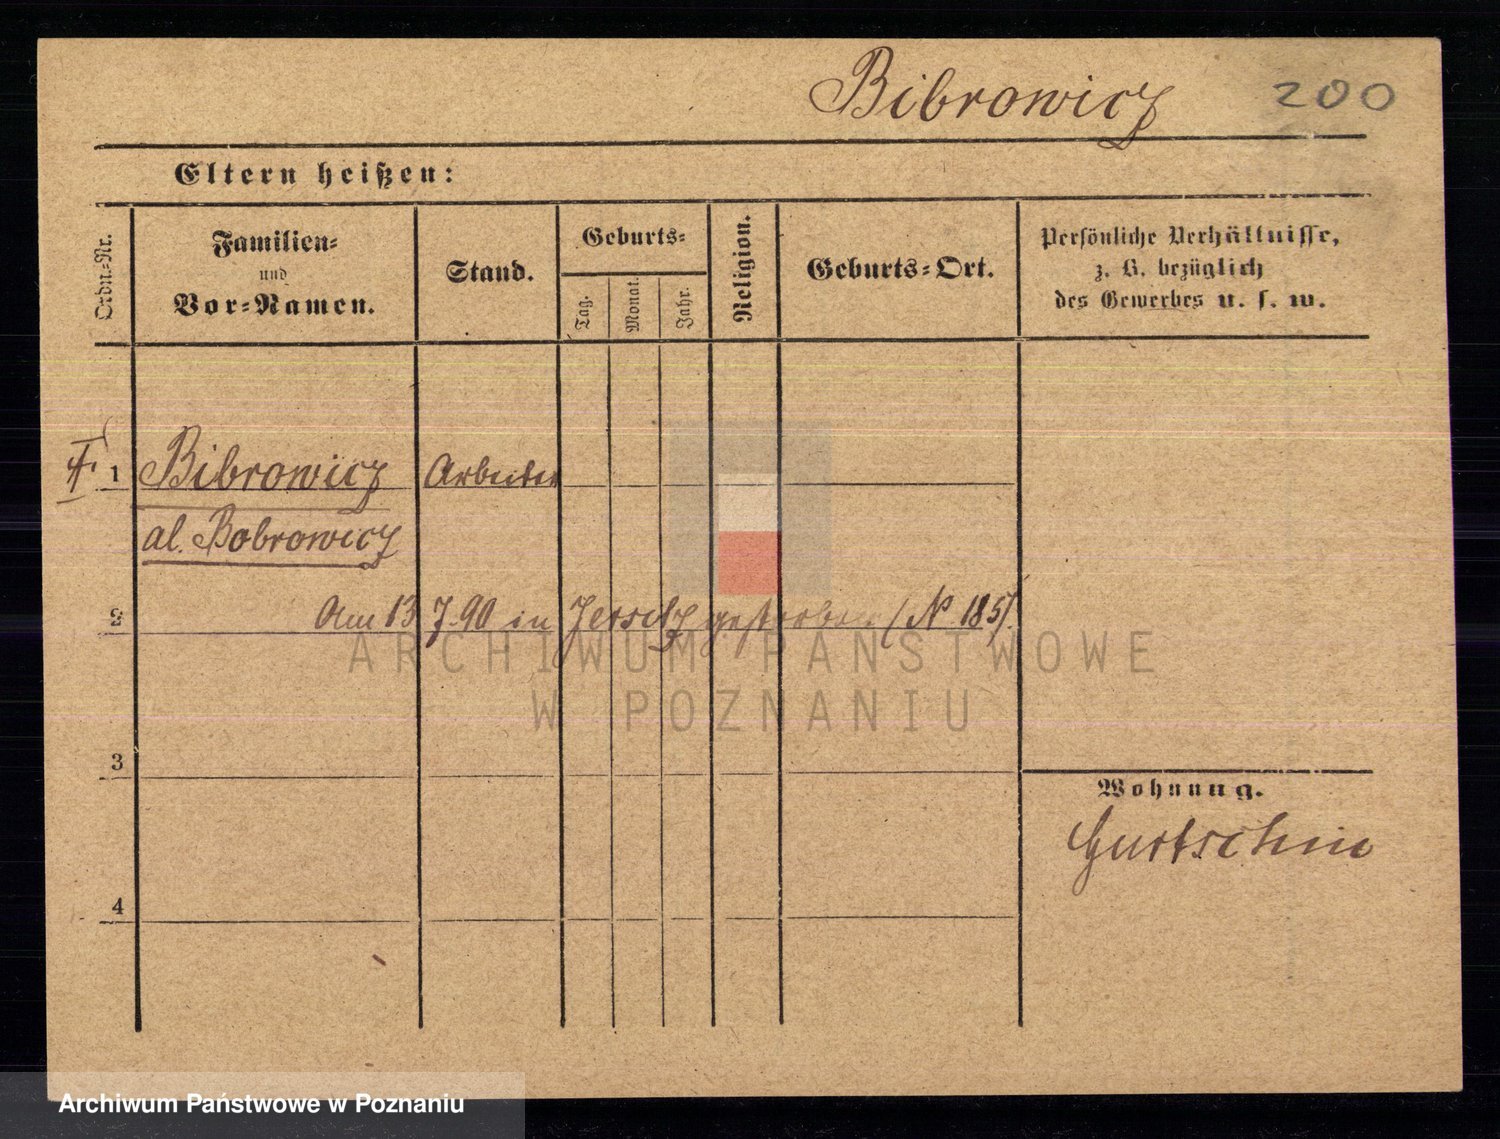 Bibrowicz 200
Eltern heißen:
Ordn.-Nr.
Familien-
und
Vor-Namen.
Stand.
Geburts-
Tag.
Monat.
Jahr.
Religion.
Geburts-Ort.
Persönliche Verhältnisse,
z. B. bezüglich
des Gewerbes u. s. w.
1 Bibrowicz Arbeiter
al. Bobrowicz
2 Am 13 7.90 in Jersitz gestorben (№ 185).
ARCHIWUM PAŃSTWOWE
W POZNANIU
3
Wohnung.
Gurtschin
4
Archiwum Państwowe w Poznaniu